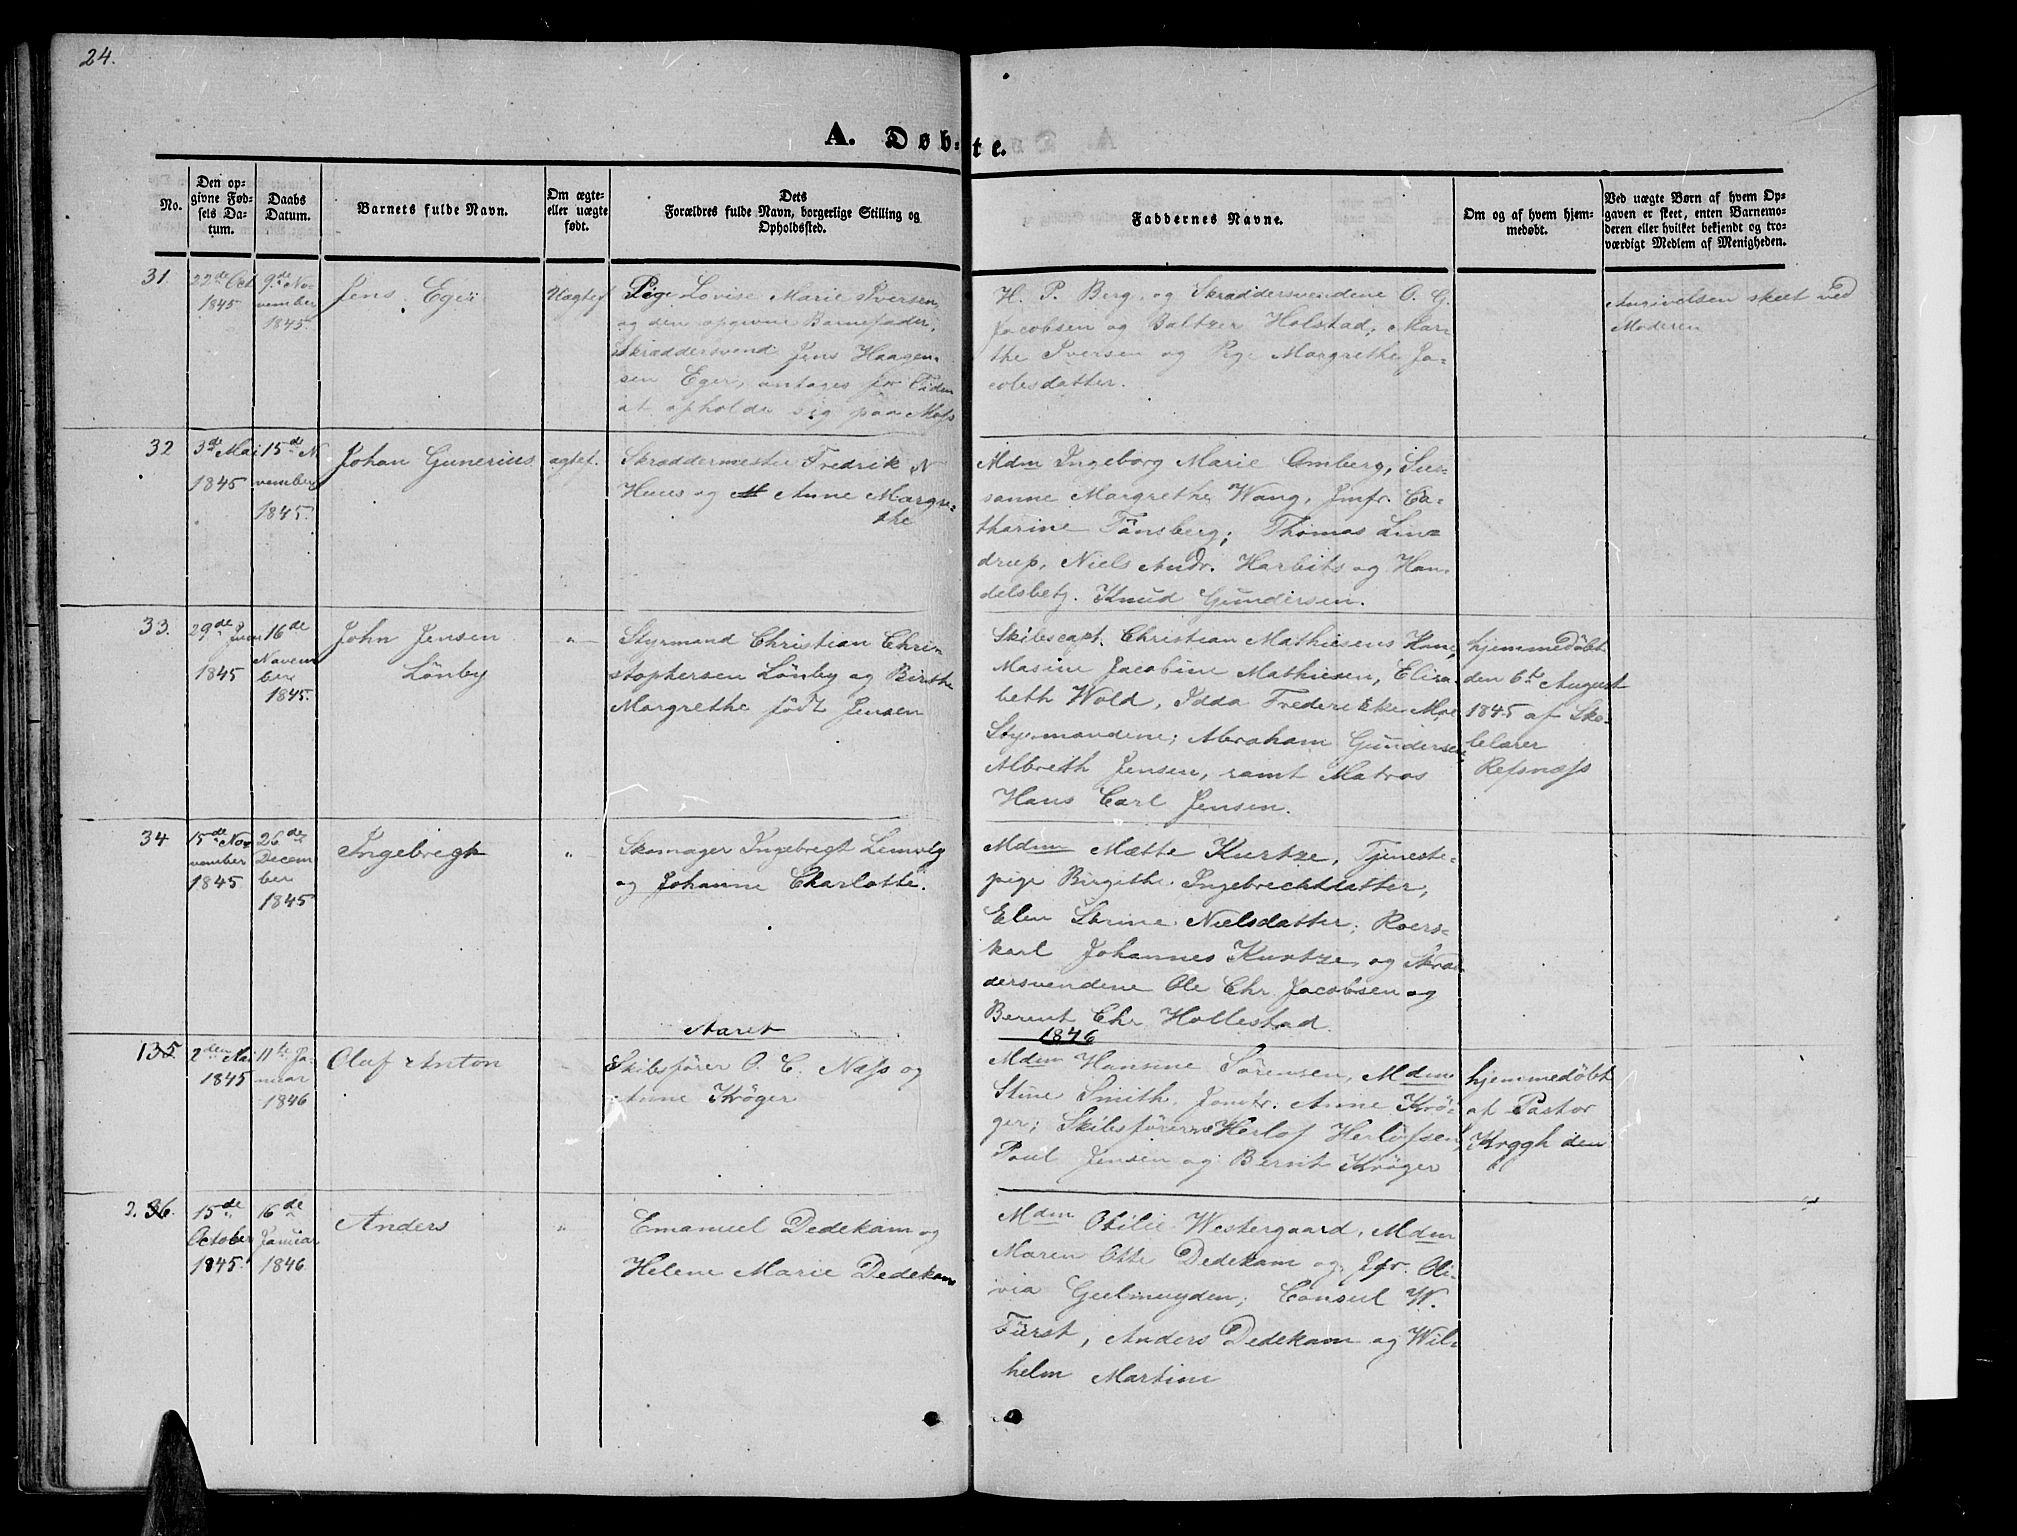 24.
A. Døb-te.
No.
Den op-
givne Fød-
sels Da-
tum.
Daabs
Datum.
Barnets fulde Navn.
Om ægte-
eller uægte
født.
Dets
Forældres fulde Navn, borgerlige Stilling og
Opholdssted.
Faddernes Navne.
Om og af hvem hjem-
medøbt.
Ved uægte Børn af hvem Op-
gaven er skeet, enten Barnemo-
deren eller hvilket bekjendt og tro-
værdigt Medlem af Menigheden.
31.
22de Oct
1845
9de No-
vember
1845.
Jens Eger
Uægtef.
Pige Lovise Marie Iversen
og den opgivne Barnefader,
Skræddersvend Jens Haagen-
sen Eger, antages for Tiden
at opholde sig paa Moss
H. P. Berg, og Skræddersvendene O. G.
Jacobsen og Baltzer Holstad, Mar-
the Iversen og Pige Margrethe Ja-
cobsdatter.
Angivelsen skeet ved
Moderen
32
3de Mai
1845
15de N
vember
1845.
Johan Gunerius
ægtef.
Skræddermester Fredrik N
Huus og Anne Margre-
the
Mdm Ingeborg Marie Omberg, Su-
sanne Margrethe Wang, Jmfr. Ca-
tharine Tönsberg; Thomas Lin-
drup, Niels Andr. Harbits og Han-
delsbetj. Knud Gundersen.
33.
29de Juni
1845
16de
Novem
ber
1845.
John Jensen
Lönby
"
Styrmand Christian Chri-
stophersen Lönby og Birthe
Margrethe født Jensen
Skibscapt. Christian Mathiesens Kone,
Masine Jacobine Mathiesen, Elisa-
beth Wold, Idda Frederikke Moe
Styrmandene; Abraham Gundersen,
Albreth Jensen, samt Matros
Hans Carl Jensen.
hjemmedöbt
den 6te August
1845 af Sko-
lelærer
Refsnæss
34
15de No-
vember
1845
26de
Decem
ber
1845
Ingebregt
"
Skomager Ingebregt
og Johanne Charlotte.
Mdm Mætte Kurtze, Tjeneste-
pige Birgithe Ingebrechtdatter,
Elen Strine Nielsdatter; Roers-
karl Johannes Kurtze, og Skræd-
dersvendene Ole Chr Jacobsen og
Berent Chr Hollestad.
Aaret
1846
135
2den Mai
1845
11te Ja-
nuar
1846
Olaf Anton
Skibsförer O. C. Næss og
Anne Kröger
Mdm Hansine Sörensen, Mdm
Stine Smith, Jomfr. Anne Krö-
ger; Skibsförerne Herlof Herlofsen,
Poul Jensen og Bernt Kröger
hjemmedöbt
af Pastor
Krogh den
2. 36.
15de
October
1845.
16de
Januar
1846
Anders
"
Emanuel Dedekam og
Helene Marie Dedekam
Mdm Otilie Westergaard, Mdm
Maren Otte Dedekam og Jfr. Oli-
via Geelmuyden; Consul W.
Fürst, Anders Dedekam og Wil-
helm Martini